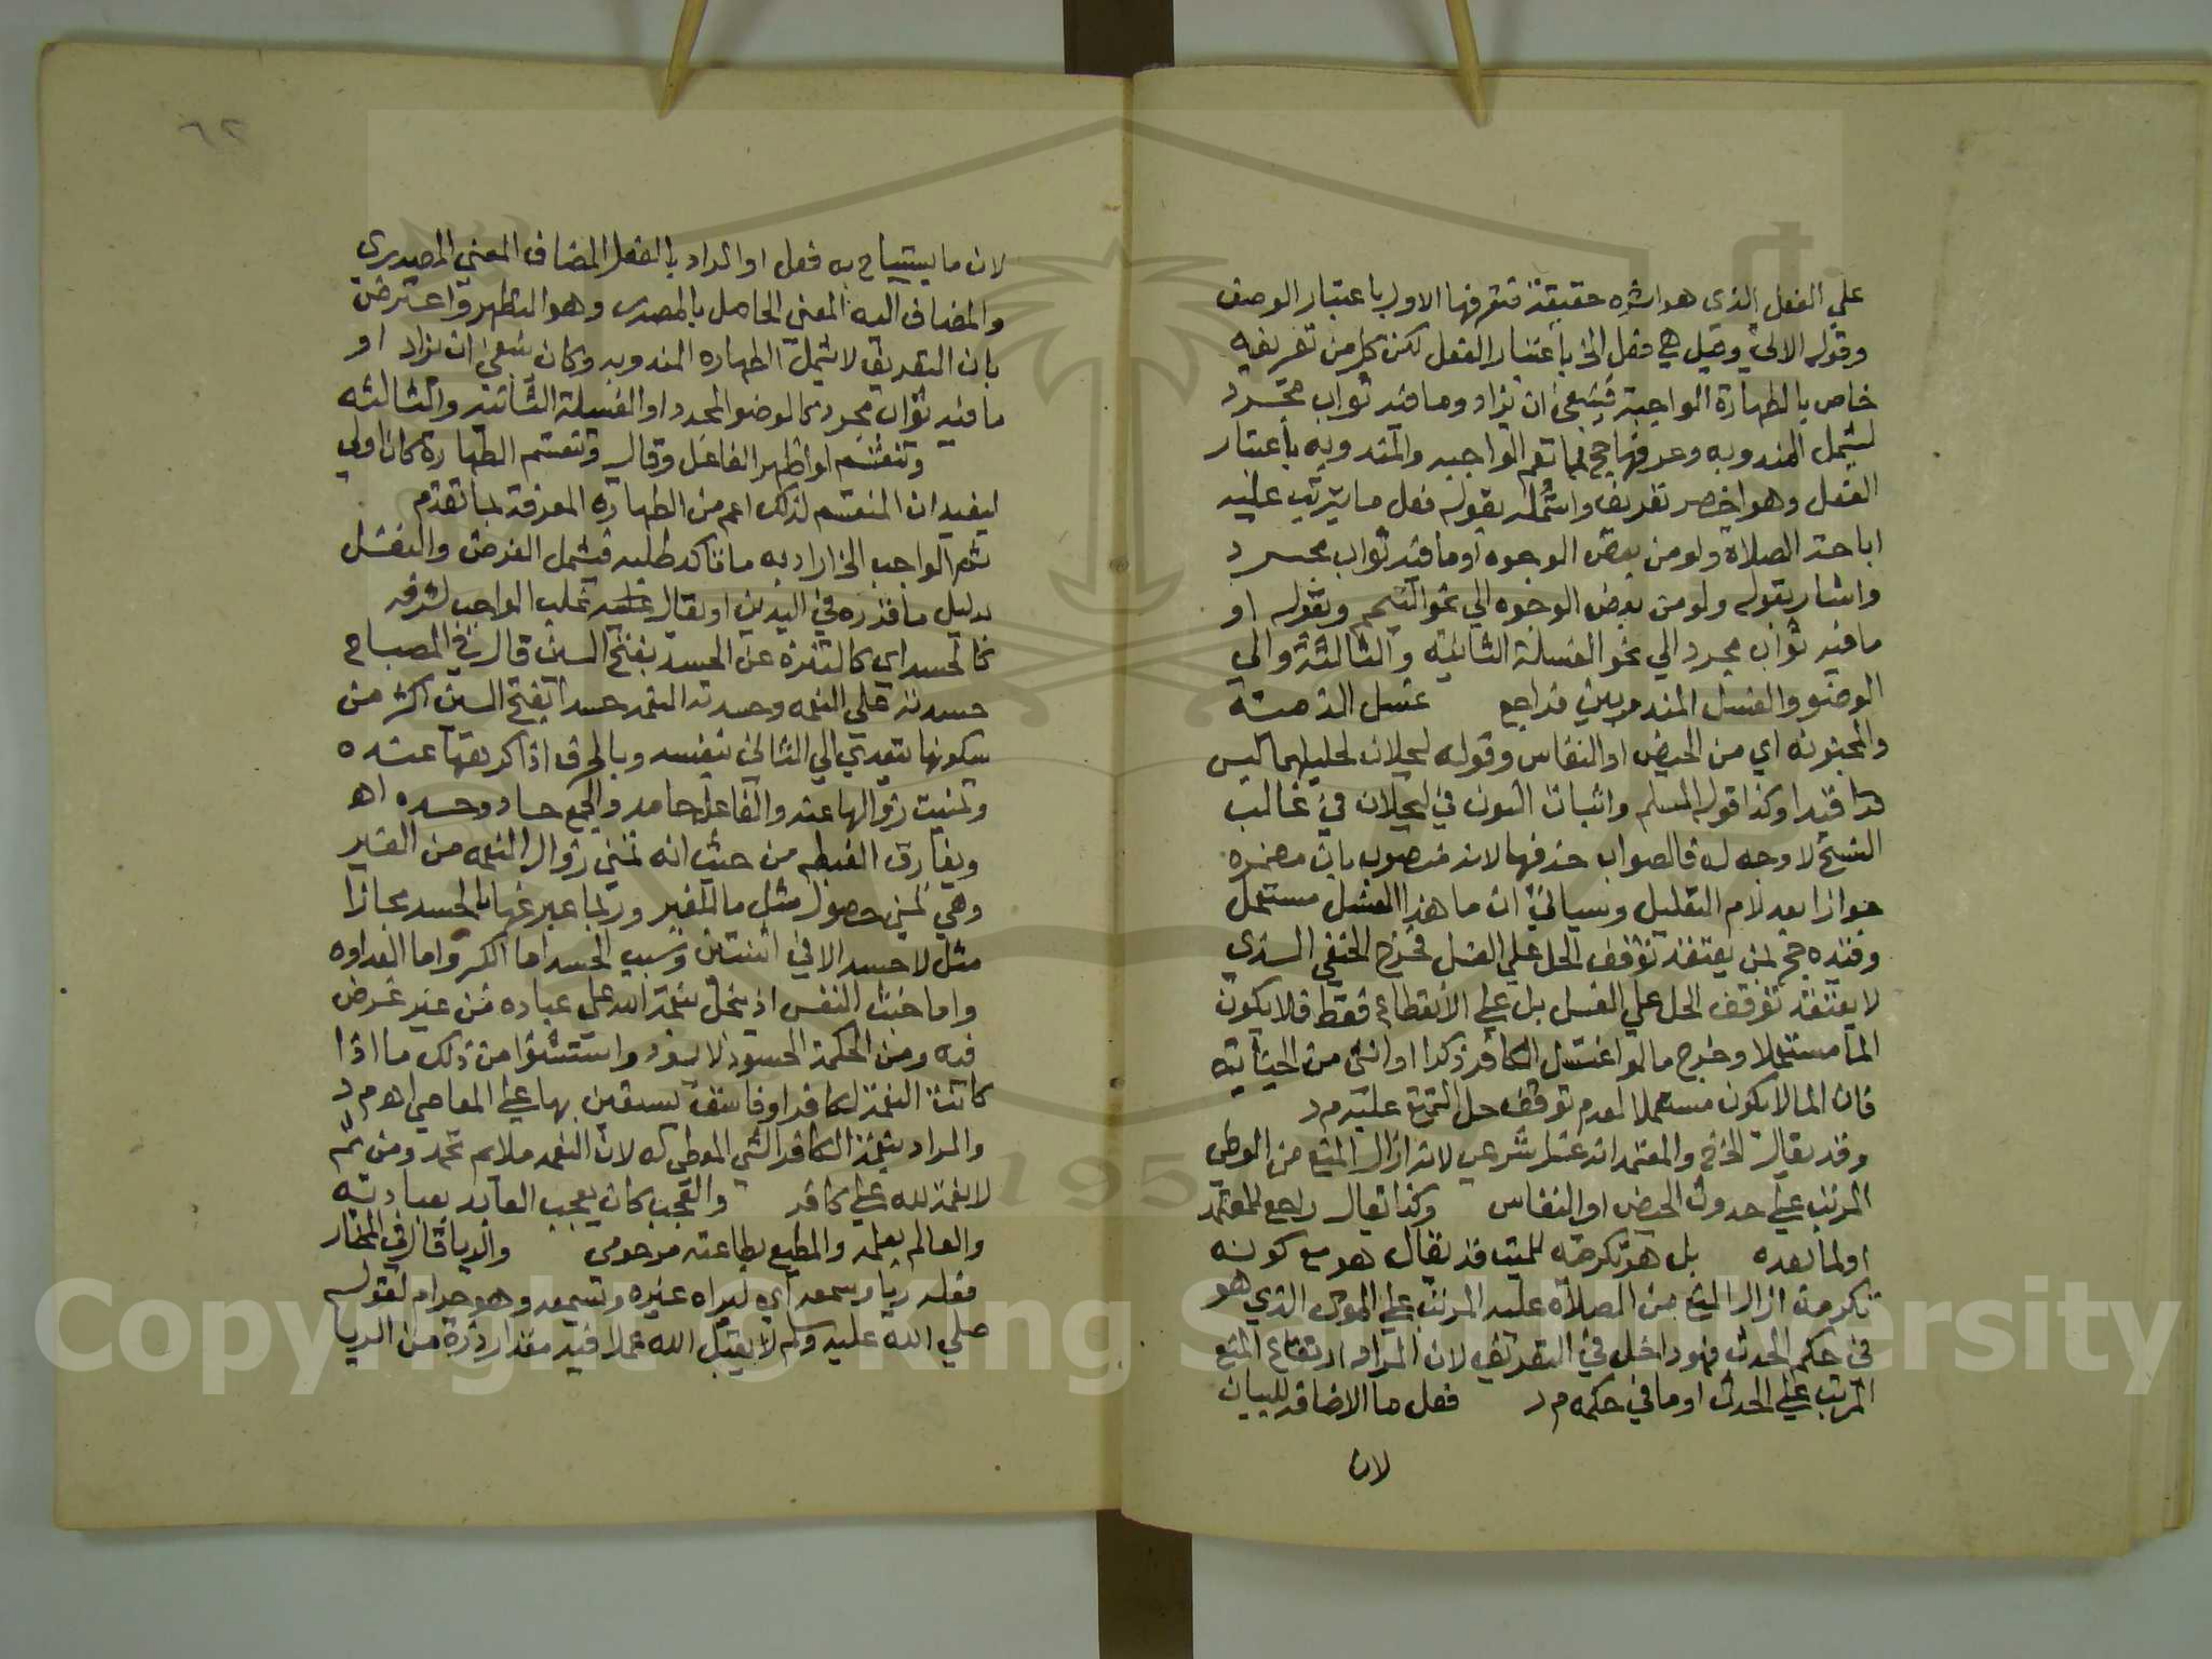 علي الفعل الذي هو اثره حقيقة فتعرفها الاول باعتبار الوصف
وقوله الاتي وقيل هي فعل الخ باعتبار الفعل لكن كل من تعريفيه
خاص بالطهارة الواجبة فينبغي ان يزاد وما فيه ثواب مجرد
ليشمل المندوبه وعرفها حج بما تعم الواجبه والمندوبه باعتبار
الفعل وهو اخصر تعريف واشمله بقوله فعل ما يترتب عليه
اباحة الصلاة ولو من بعض الوجوه او ما فيه ثواب مجرد
واشار بقوله ولو من بعض الوجوه الي نحو التيمم وبقوله او
ما فيه ثواب مجرد الي نحو الغسلة الثانية والثالثة والي
الوضوء والغسل المندوبين فراجع غسل الذمية
والمجنونه اي من الحيض او النفاس وقوله ليحلان لحليلهما ليس
قيدا وكذا قوله المسلم واثبات النون في ليحلان في غالب
النسخ لا وجه له فالصواب حذفها لانه منصوب بان مضمره
جوازا بعد لام التعليل وسياتي ان ما هذا الغسل مستعمل
وقيده حج بمن يعتقد توقف الحل علي الغسل فخرج الحنفي الذي
لا يعتقد توقف الحل علي الغسل بل علي الانقطاع فقط فلا يكون
الما مستعملا وخرج ما لو اغتسل الكافر ذكرا او انثى من الجنابة
فان الما لا يكون مستعملا لعدم توقف حل التمتع عليه م د
وقد يقال الخ والمعتمد انه غسل شرعي لانه ازال المنع من الوطي
المرتب علي حدوث الحيض او النفاس وكذا يقال راجع للمعتمد
او لما بعده بل هو تكرمه للميت قد يقال هو مع كونه
تكرمة ازال المنع من الصلاة عليه المرتب علي الموت الذي هو
في حكم الحدث فهو داخل في التعريف لان المراد ارتفاع المنع
المرتب علي الحدث او ما في حكمه م د فعل ما الاضافه للبيان
لان
٦٢
لان ما يستباح به فعل او المراد بالفعل المضاف المعني المصدري
والمضاف اليه المعني الحاصل بالمصدر وهو التطهر واعترض
بان التعريف لا يشمل الطهاره المندوبه وكان ينبغي ان يزاد او
ما فيه ثواب مجرد كالوضو المجدد او الغسلة الثانية والثالثه
وتنقسم لو اظهر الفاعل وقال وتنقسم الطهارة كان اولي
ليفيد ان المنقسم لذلك اعم من الطهاره المعرفة بما تقدم
ثم الواجب الخ اراد به ما تاكد طلبه فيشمل الفرض والنفل
بدليل ما قرره في اليدين او يقال غلب الواجب لشرفه
كالحسد اي كالتنزه عن الحسد بفتح السين قال في المصباح
حسدته علي النعمه وحسدته النعمه حسدا بفتح السين اكثر من
سكونها يتعدي الي الثاني بنفسه وبالحرف اذا كرهتها عنده
وتمنيت زوالها عنه والفاعل حاسد والجمع حساد وحسده اهـ
ويفارق الغبطه من حيث انه تمني زوال النعمه من الغير
وهي تمني حصول مثل ما للغير وربما عبر عنها بالحسد مجازا
مثل لا حسد الا في اثنتين وسبب الحسد اما الكبر واما العداوه
واما خبث النفس اذ يبخل بنعمة الله علي عباده من غير غرض
فيه ومن الحكمة الحسود لا يسود واستثنوا من ذلك ما اذا
كانت النعمة لكافر او فاسق يستعين بها علي المعاصي اهـ م د
والمراد بنعمة الكافر الشي المعطي له لان النعمه ملايم تحمد ومن ثم
لا نعمة لله علي كافر والعجب كان يعجب العابد بعبادته
والعالم بعلمه والمطيع بطاعته مرحومي والريا قال في المختار
فعله ريا وسمعه اي ليراه غيره وتسمعه وهو حرام لقوله
صلي الله عليه وسلم لا يقبل الله عملا فيه مقدار ذرة من الريا
Copyright © King Saud University
1957